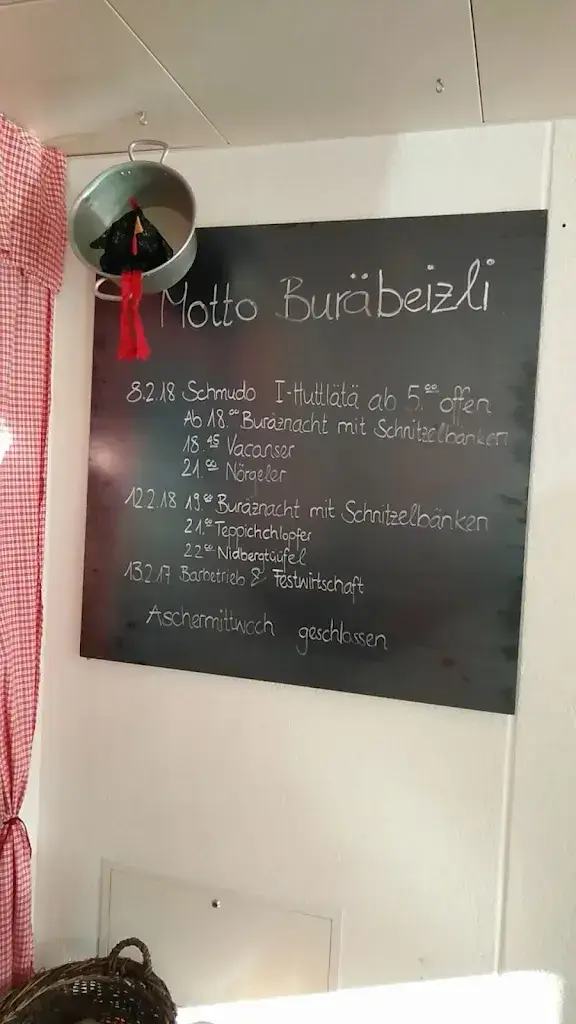 Motto Buräbeizli
8.2.18 Schmudo I-Huttlätä ab 5.⁰⁰ offen
Ab 18.⁰⁰ Buräznacht mit Schnitzelbänken
18.⁴⁵ Vacanser
21.⁰⁰ Nörgeler
12.2.18 19.⁰⁰ Buräznacht mit Schnitzelbänken
21.⁰⁰ Teppichchlopfer
22.⁰⁰ Nidbergtüüfel
13.2.17 Barbetrieb & Festwirtschaft
Aschermittwoch geschlossen